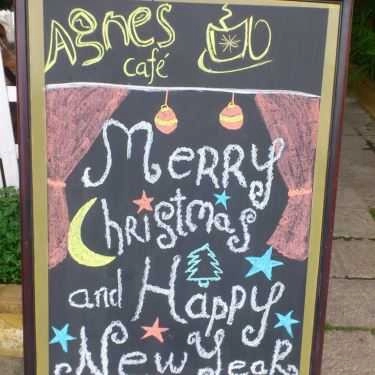 Agnes
Café
Merry
Christmas
and Happy
New Year